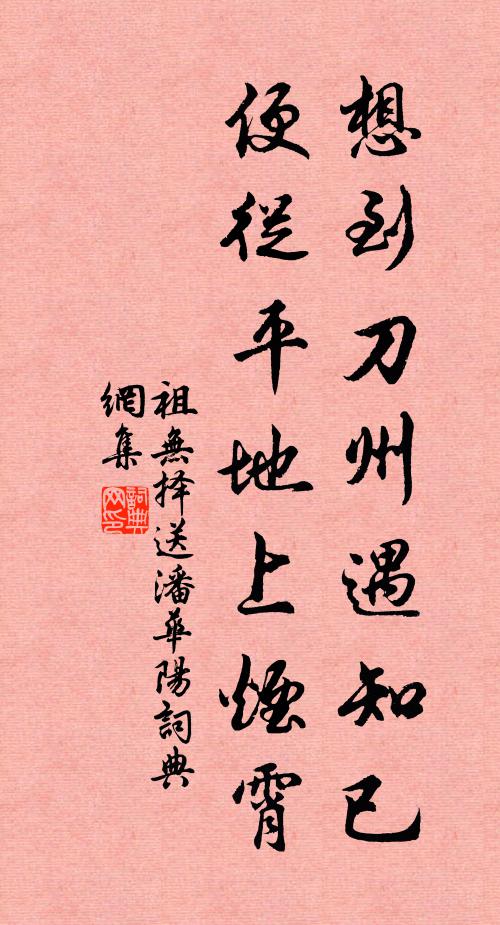 想到刀州遇知已
便從平地上煙霄
祖無择送潘華陽詞典
網集
詞典
网印